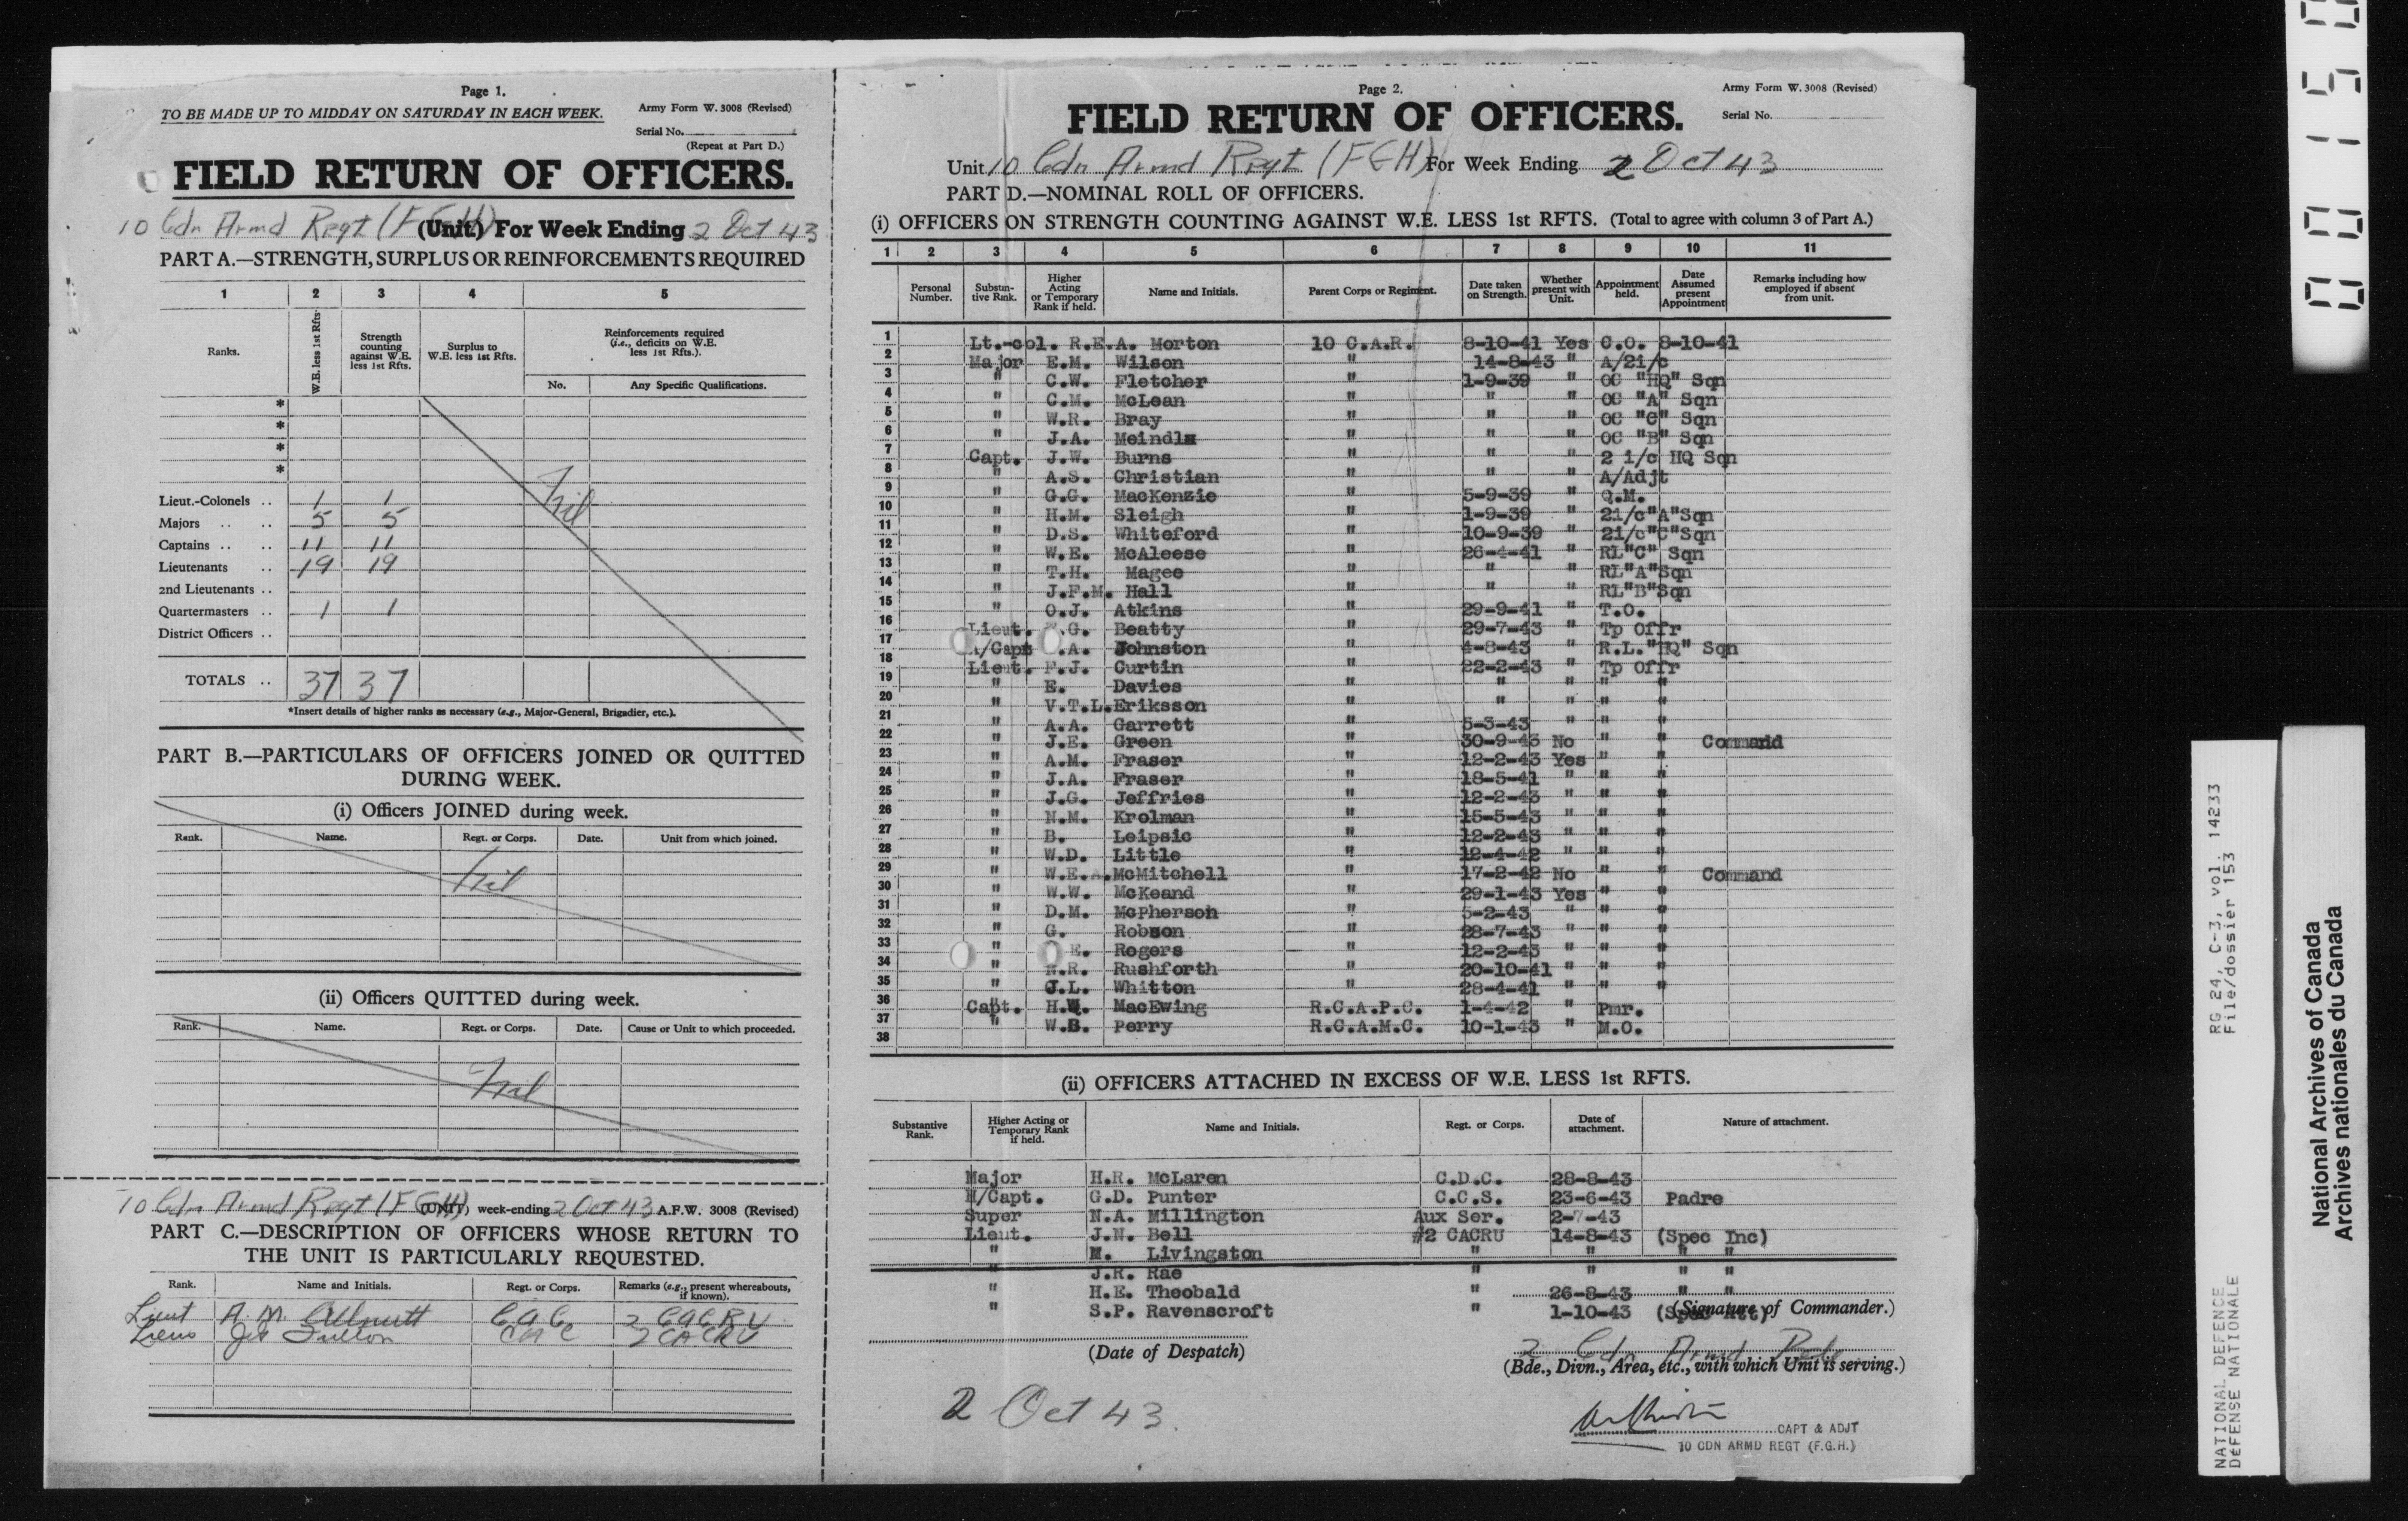 Page 1.
TO BE MADE UP TO MIDDAY ON SATURDAY IN EACH WEEK.
Army Form W. 3008 (Revised)
Serial No.
(Repeat at Part D.)
FIELD RETURN OF OFFICERS.
10 Cdn Armd Regt (FGH) (Unit) For Week Ending 2 Oct 43
PART A.—STRENGTH, SURPLUS OR REINFORCEMENTS REQUIRED
1 2 3 4 5
Ranks. W.E. less 1st Rfts. Strength counting against W.E. less 1st Rfts. Surplus to W.E. less 1st Rfts. Reinforcements required (i.e., deficits on W.E. less 1st Rfts.).
No. Any Specific Qualifications.
*
*
*
*
Nil
Lieut.-Colonels .. 1 1
Majors .. .. 5 5
Captains .. .. 11 11
Lieutenants .. 19 19
2nd Lieutenants ..
Quartermasters .. 1 1
District Officers ..
TOTALS .. 37 37
*Insert details of higher ranks as necessary (e.g., Major-General, Brigadier, etc.).
PART B.—PARTICULARS OF OFFICERS JOINED OR QUITTED
DURING WEEK.
(i) Officers JOINED during week.
Rank. Name. Regt. or Corps. Date. Unit from which joined.
Nil
(ii) Officers QUITTED during week.
Rank. Name. Regt. or Corps. Date. Cause or Unit to which proceeded.
Nil
10 Cdn Armd Regt (FGH) (UNIT) week-ending 2 Oct 43 A.F.W. 3008 (Revised)
PART C.—DESCRIPTION OF OFFICERS WHOSE RETURN TO
THE UNIT IS PARTICULARLY REQUESTED.
Rank. Name and Initials. Regt. or Corps. Remarks (e.g., present whereabouts, if known).
Lieut A. M. CAC 2 CACRU
Lieut CAC 2 CACRU
Page 2.
Army Form W. 3008 (Revised)
FIELD RETURN OF OFFICERS.
Serial No.
Unit 10 Cdn Armd Regt (FGH) For Week Ending 2 Oct 43
PART D.—NOMINAL ROLL OF OFFICERS.
(i) OFFICERS ON STRENGTH COUNTING AGAINST W.E. LESS 1st RFTS. (Total to agree with column 3 of Part A.)
1 2 3 4 5 6 7 8 9 10 11
Personal Number. Substan-tive Rank. Higher Acting or Temporary Rank if held. Name and Initials. Parent Corps or Regiment. Date taken on Strength. Whether present with Unit. Appointment held. Date Assumed present Appointment Remarks including how employed if absent from unit.
1 Lt.-col. R.E.A. Morton 10 C.A.R. 8-10-41 Yes C.O. 8-10-41
2 Major E.M. Wilson " 14-8-43 " A/2i/c
3 " C.W. Fletcher " 1-9-39 " OC "HQ" Sqn
4 " C.M. McLean " " " OC "A" Sqn
5 " W.R. Bray " " " OC "C" Sqn
6 " J.A. Meindl " " " OC "B" Sqn
7 Capt. J.W. Burns " " " 2 i/c HQ Sqn
8 " A.S. Christian " " " A/Adjt
9 " G.G. MacKenzie " 5-9-39 " Q.M.
10 " H.M. Sleigh " 1-9-39 " 2i/c"A"Sqn
11 " D.S. Whiteford " 10-9-39 " 2i/c"C"Sqn
12 " W.E. McAleese " 26-4-41 " RL"C" Sqn
13 " T.H. Magee " " " RL"A"Sqn
14 " J.F.M. Hall " " " RL"B"Sqn
15 " O.J. Atkins " 29-9-41 " T.O.
16 Lieut. .G. Beatty " 29-7-43 " Tp Offr
17 /Capt .A. Johnston " 4-8-43 " R.L."HQ" Sqn
18 Lieut. F.J. Curtin " 22-2-43 " Tp Offr
19 " E. Davies " " " " "
20 " V.T.L. Eriksson " " " " "
21 " A.A. Garrett " 5-3-43 " " "
22 " J.E. Green " 30-9-43 No " " Command
23 " A.M. Fraser " 12-2-43 Yes " "
24 " J.A. Fraser " 18-5-41 " " "
25 " J.G. Jeffries " 12-2-43 " " "
26 " N.M. Krolman " 15-5-43 " " "
27 " B. Leipsic " 12-2-43 " " "
28 " W.D. Little " 12-4-42 " " "
29 " W.E.A. McMitchell " 17-2-42 No " " Command
30 " W.W. McKeand " 29-1-43 Yes " "
31 " D.M. McPherson " 5-2-43 " " "
32 " G. Robson " 28-7-43 " " "
33 " E. Rogers " 12-2-43 " " "
34 " N.R. Rushforth " 20-10-41 " " "
35 " J.L. Whitton " 28-4-41 " " "
36 Capt. H.W. MacEwing R.C.A.P.C. 1-4-42 " Pmr.
37 " W.B. Perry R.C.A.M.C. 10-1-43 " M.O.
38
(ii) OFFICERS ATTACHED IN EXCESS OF W.E. LESS 1st RFTS.
Substantive Rank. Higher Acting or Temporary Rank if held. Name and Initials. Regt. or Corps. Date of attachment. Nature of attachment.
Major H.R. McLaren C.D.C. 28-8-43
H/Capt. G.D. Punter C.C.S. 23-6-43 Padre
Super N.A. Millington Aux Ser. 2-7-43
Lieut. J.N. Bell #2 CACRU 14-8-43 (Spec Inc)
" M. Livingston " " " "
" J.R. Rae " " " "
" H.E. Theobald " 26-8-43 " "
" S.P. Ravenscroft " 1-10-43 (Spec Att)
(Signature of Commander.)
(Date of Despatch)
2 Cdn Armd Bde
(Bde., Divn., Area, etc., with which Unit is serving.)
2 Oct 43.
CAPT & ADJT
10 CDN ARMD REGT (F.G.H.)
00150
NATIONAL DEFENCE RG 24, C-3, vol. 14233
DEFENSE NATIONALE File/dossier 153
National Archives of Canada
Archives nationales du Canada